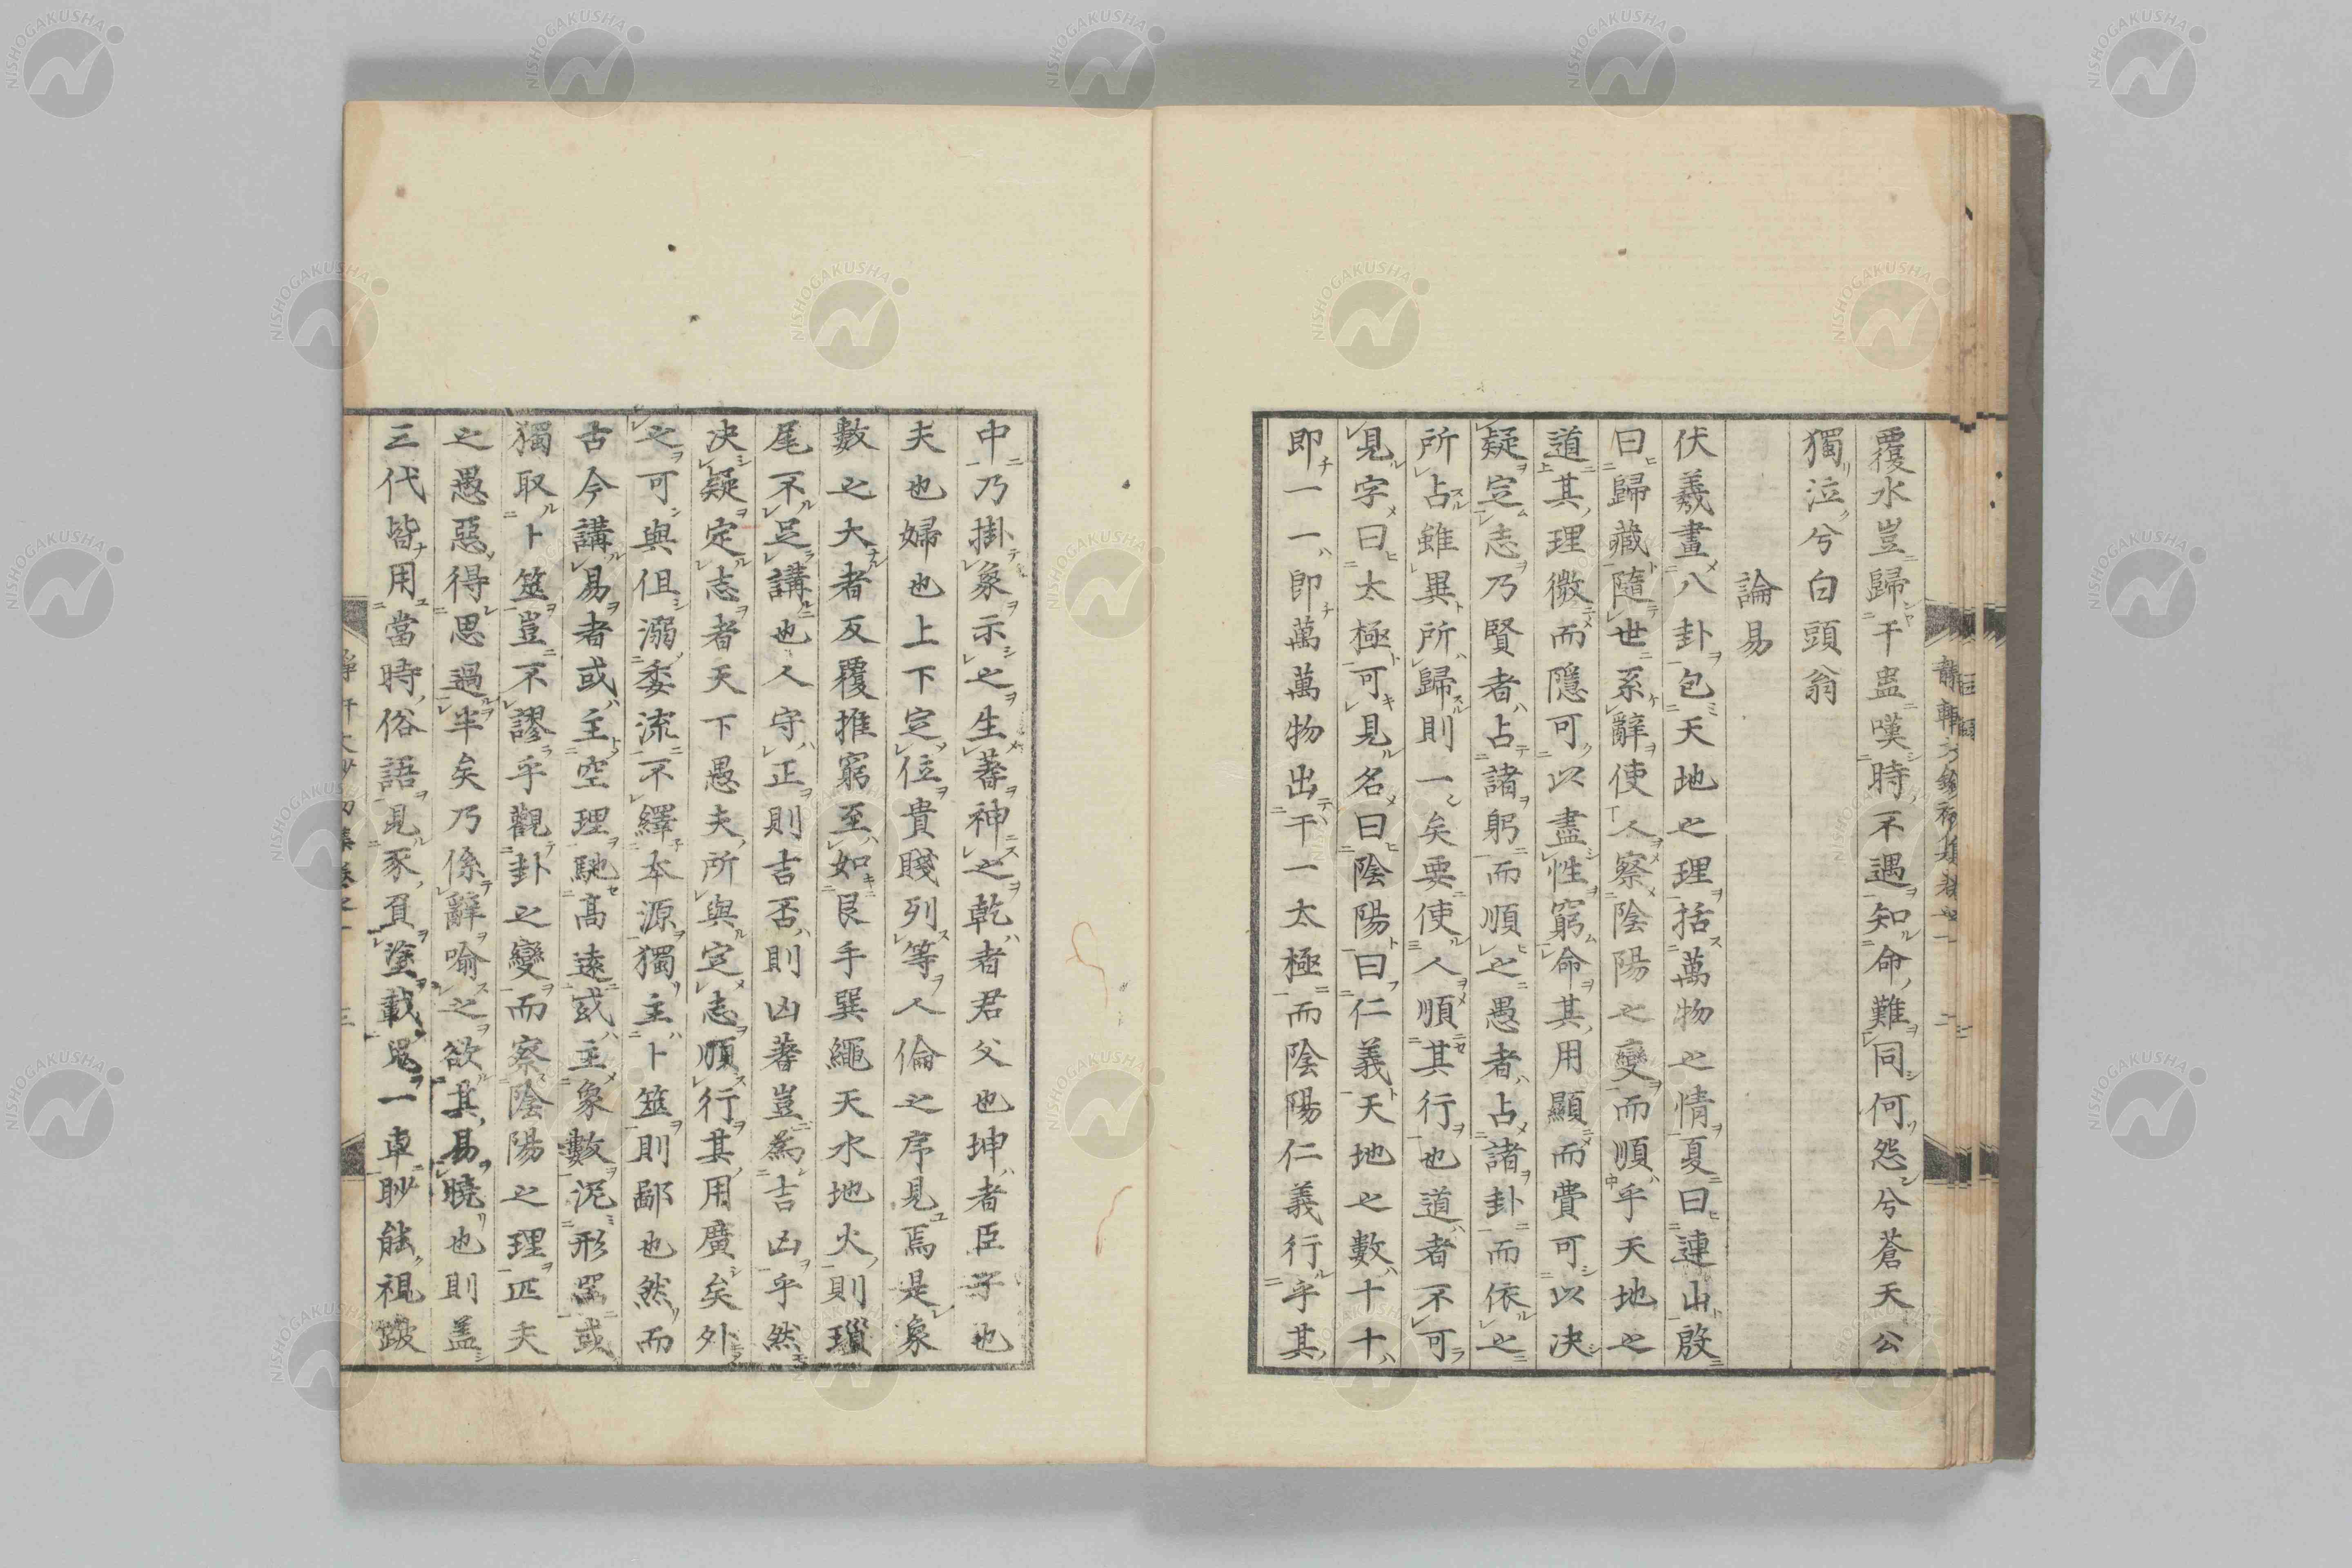 覆水豈歸干盅嘆時不遇知命難同何怨兮蒼天公
獨泣兮白頭翁
論易
伏羲畫八卦包天地之理括萬物之情夏曰連山啟
曰歸藏隨世系辭使人察陰陽之變而順乎天地之
道其理微而隱可以盡性窮命其用顯而費可以決
疑定志乃賢者占諸躬而順之愚者占諸卦而依之
所占雖異所歸則一矣要使人順其行也道者不可
見字曰太極可見名曰陰陽曰仁義天地之數十十
即一一即萬萬物出干一太極而陰陽仁義行乎其
中乃掛象示之生蓍神之乾者君父也坤者臣子也
夫也婦也上下定位貴賤列等人倫之序見焉是象
數之大者反覆推窮至如艮手巽繩天水地火則瑣
尾不足講也人守正則吉否則凶蓍豈為吉凶乎然
決疑定志者天下愚夫所與定志順行其用廣矣外
之可與但溺委流不繹本源獨主卜筮則鄙也然而
古今講易者或主空理馳高遠或主象數泥形器或
獨取卜筮豈不謬乎觀卦之變而察陰陽之理匹夫
之愚惡得思過半矣乃係辭喻之欲其易曉也則盖
三代皆用當時俗語見豕負塗載鬼一車眇能視跛
NISHOGAKUSHA